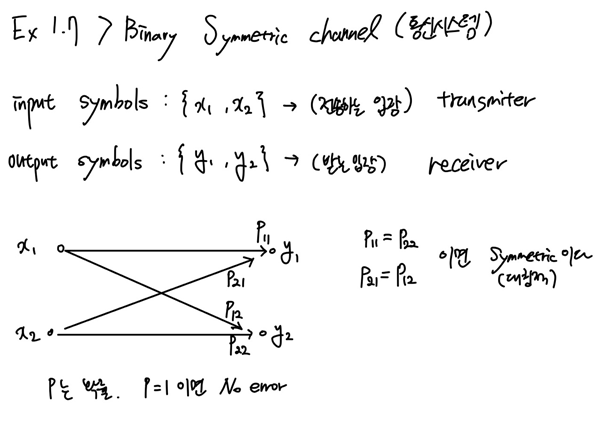 Ex 1.7 > Binary Symmetric channel (통신시스템)
input symbols : { x₁ , x₂ } → (전송하는 입장) transmiter
output symbols : { y₁ , y₂ } → (받는 입장) receiver
x₁ P₁₁ y₁
P₂₁
P₁₂
x₂ P₂₂ y₂
P₁₁ = P₂₂
P₂₁ = P₁₂
이면 Symmetric 이다
(대칭적)
P는 확률. P=1 이면 No error